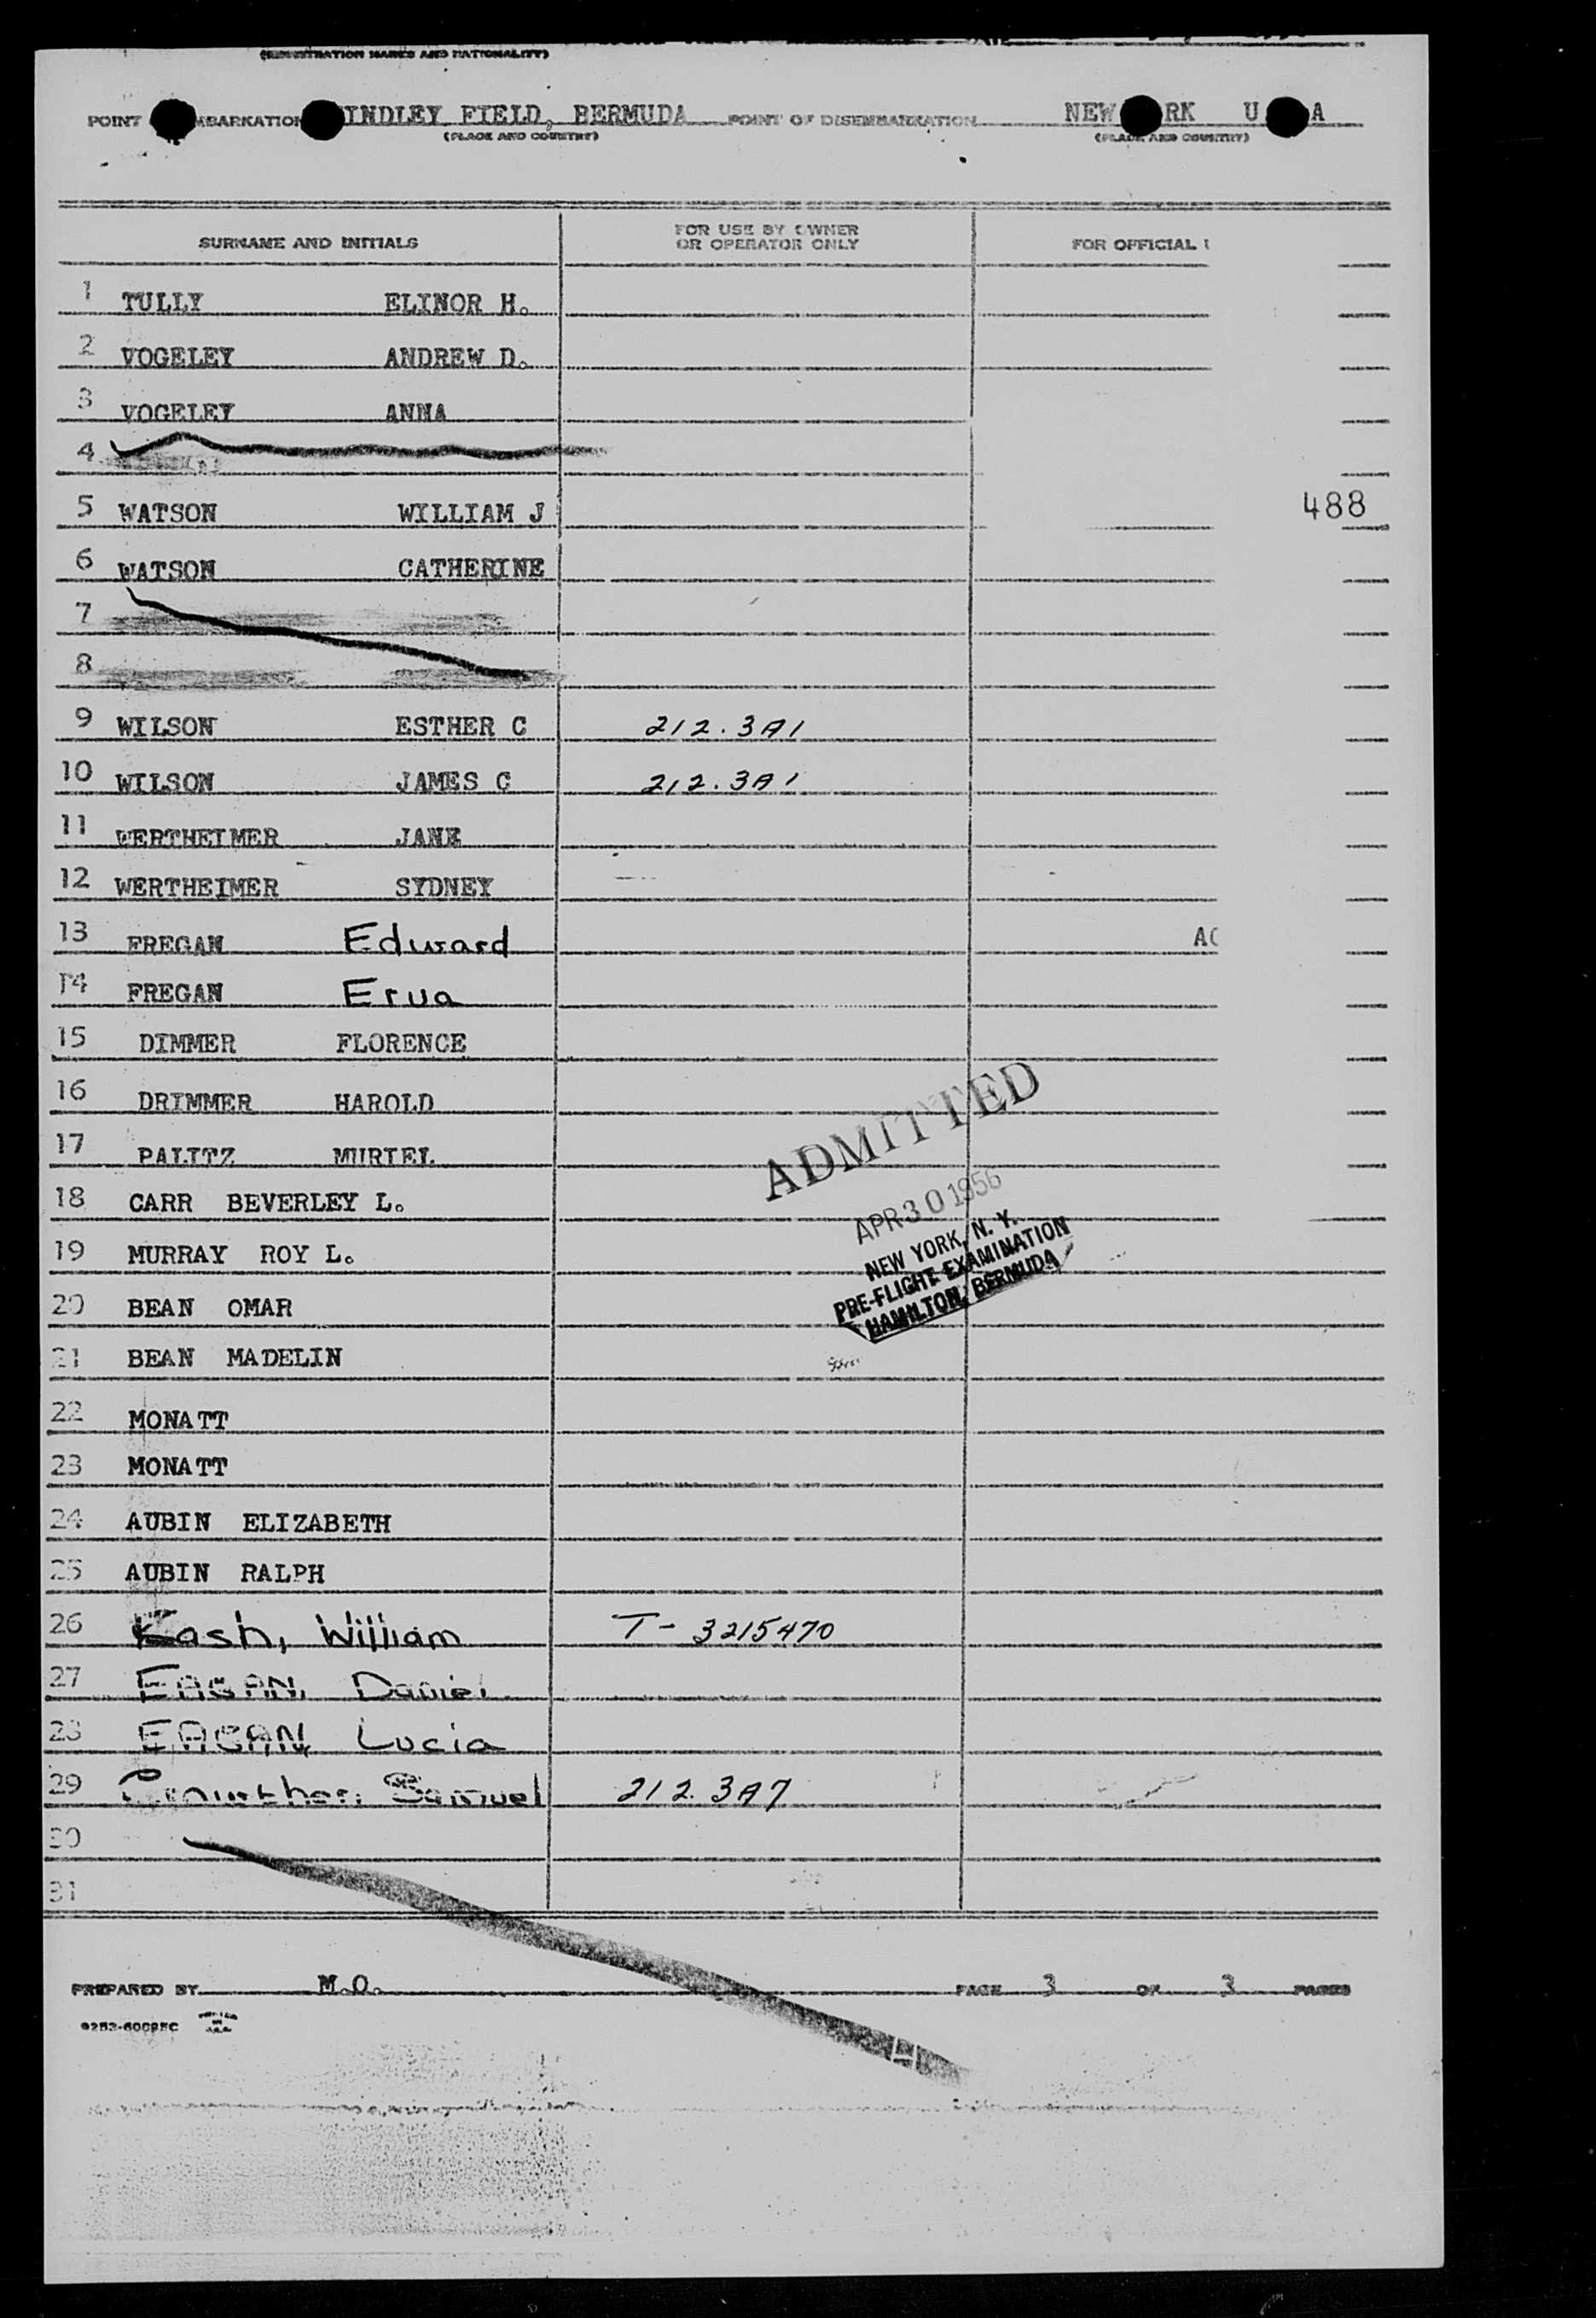 (REGISTRATION MARKS AND NATIONALITY)
POINT MBARKATION INDLEY FIELD, BERMUDA POINT OF DISEMBARKATION NEW RK U A
(PLACE AND COUNTRY) (PLACE AND COUNTRY)
SURNAME AND INITIALS FOR USE BY OWNER OR OPERATOR ONLY FOR OFFICIAL U
1 TULLY ELINOR H.
2 VOGELEY ANDREW D.
3 VOGELEY ANNA
4
5 WATSON WILLIAM J 488
6 WATSON CATHERINE
7
8
9 WILSON ESTHER C 212.3A1
10 WILSON JAMES C 212.3A1
11 WERTHEIMER JANE
12 WERTHEIMER SYDNEY
13 FREGAN Edward AC
14 FREGAN Erua
15 DIMMER FLORENCE
16 DRIMMER HAROLD
17 PALITZ MURIEL
18 CARR BEVERLEY L.
19 MURRAY ROY L.
20 BEAN OMAR
21 BEAN MADELIN
22 MONATT
23 MONATT
24 AUBIN ELIZABETH
25 AUBIN RALPH
26 Kash, William T-3215470
27 EAGAN, Daniel
28 EAGAN, Lucia
29 Crowther, Samuel 212.3A7
30
31
ADMITTED
APR 30 1956
NEW YORK, N. Y.
PRE-FLIGHT EXAMINATION
HAMILTON, BERMUDA
PREPARED BY M.O. PAGE 3 OF 3 PAGES
PRINTED IN U.S.A.